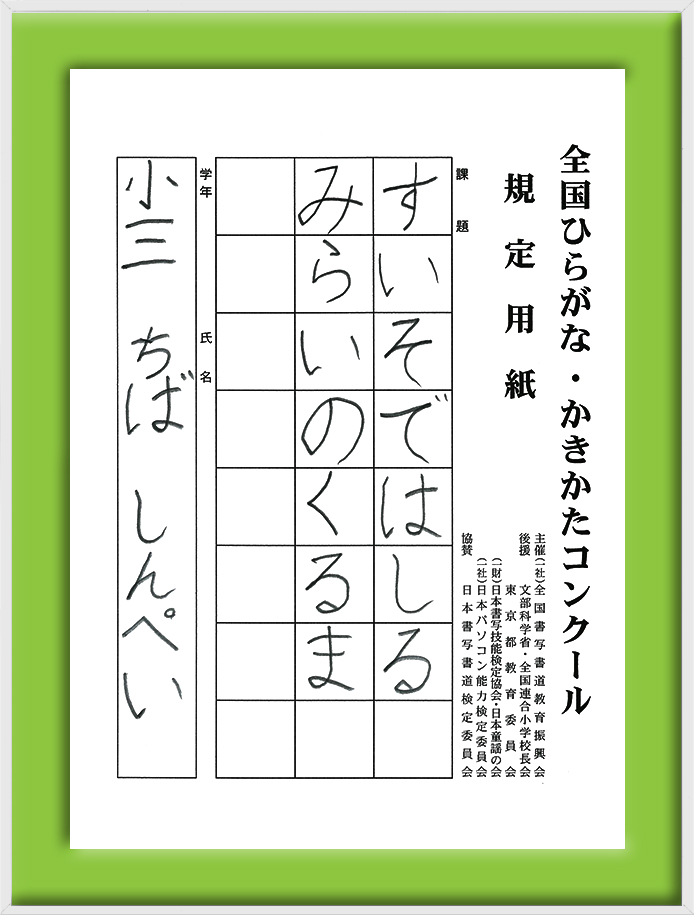 全国ひらがな・かきかたコンクール
規定用紙
主催(一社)全国書写書道教育振興会
後援 文部科学省・全国連合小学校長会
東京都教育委員会
(一財)日本書写技能検定協会・日本童謡の会
(一社)日本パソコン能力検定委員会
協賛 日本書写書道検定委員会
課題
すいそではしる
みらいのくるま
学年 氏名
小三 ちば しんぺい